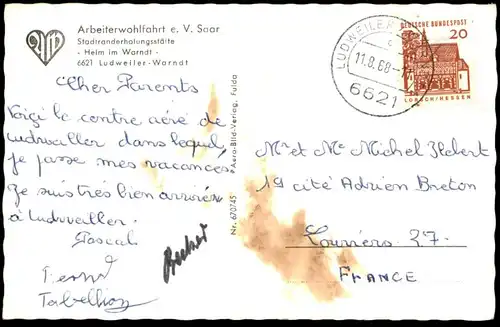 Arbeiterwohlfahrt e. V. Saar
Stadtranderholungsstätte
- Heim im Warndt -
6621 Ludweiler-Warndt
Cher Parents
Voiçi le contre aéré de
Ludwaller dans lequel
je passe mes vacances
je suis très bien arrivér
à Ludwaller.
Pascal
Bernd
Tabellion
Becker
Nr. 670745 Aero-Bild-Verlag, Fulda
LUDWEILER
c
11.8.68-
6621
DEUTSCHE BUNDESPOST
20
LORSCH/HESSEN
Mr et Me Michel Hebert
19 cité Adrien Breton
Louviers 27.
FRANCE